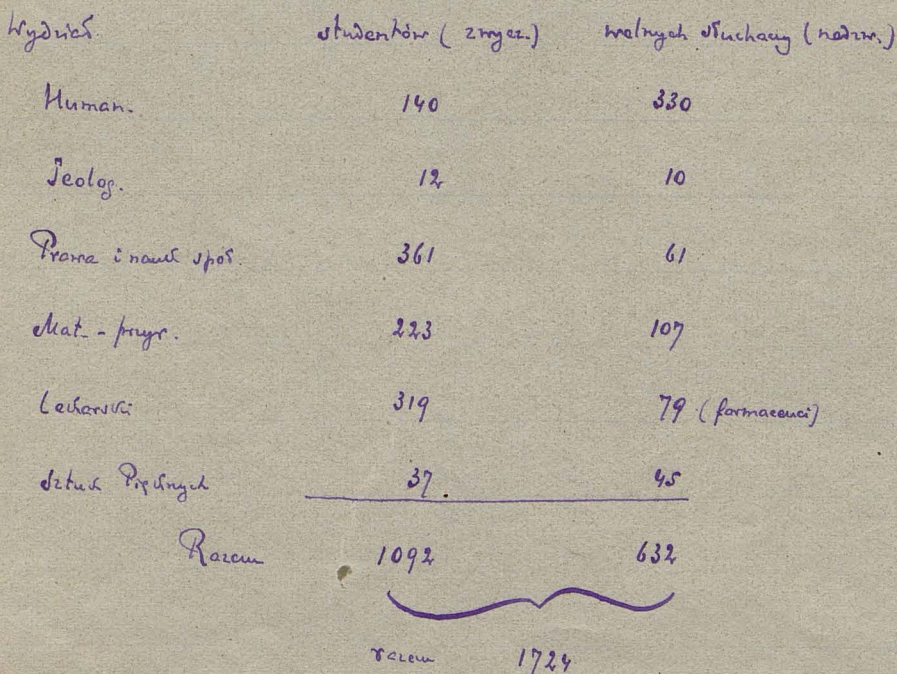 Wydział studentów (zwycz.) wolnych słuchaczy (nadzw.)
Human. 140 330
Teolog. 12 10
Prawa i nauk społ. 361 61
Mat. - przyr. 223 107
Lekarski 319 79 (farmaceuci)
Sztuk Pięknych 37 45
Razem 1092 632
razem 1724